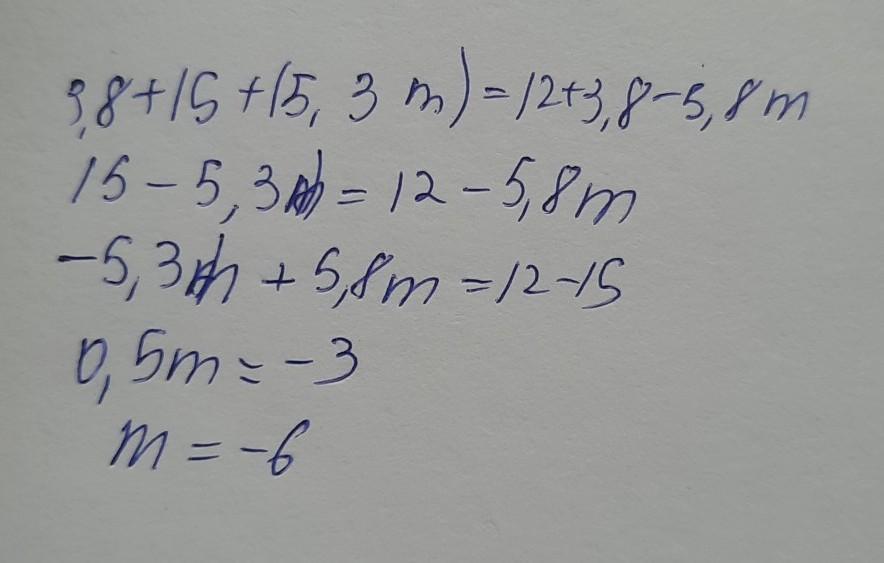 3,8+15+(5,3 m)=12+3,8-5,8m
15-5,3m=12-5,8m
-5,3m+5,8m=12-15
0,5m=-3
m=-6